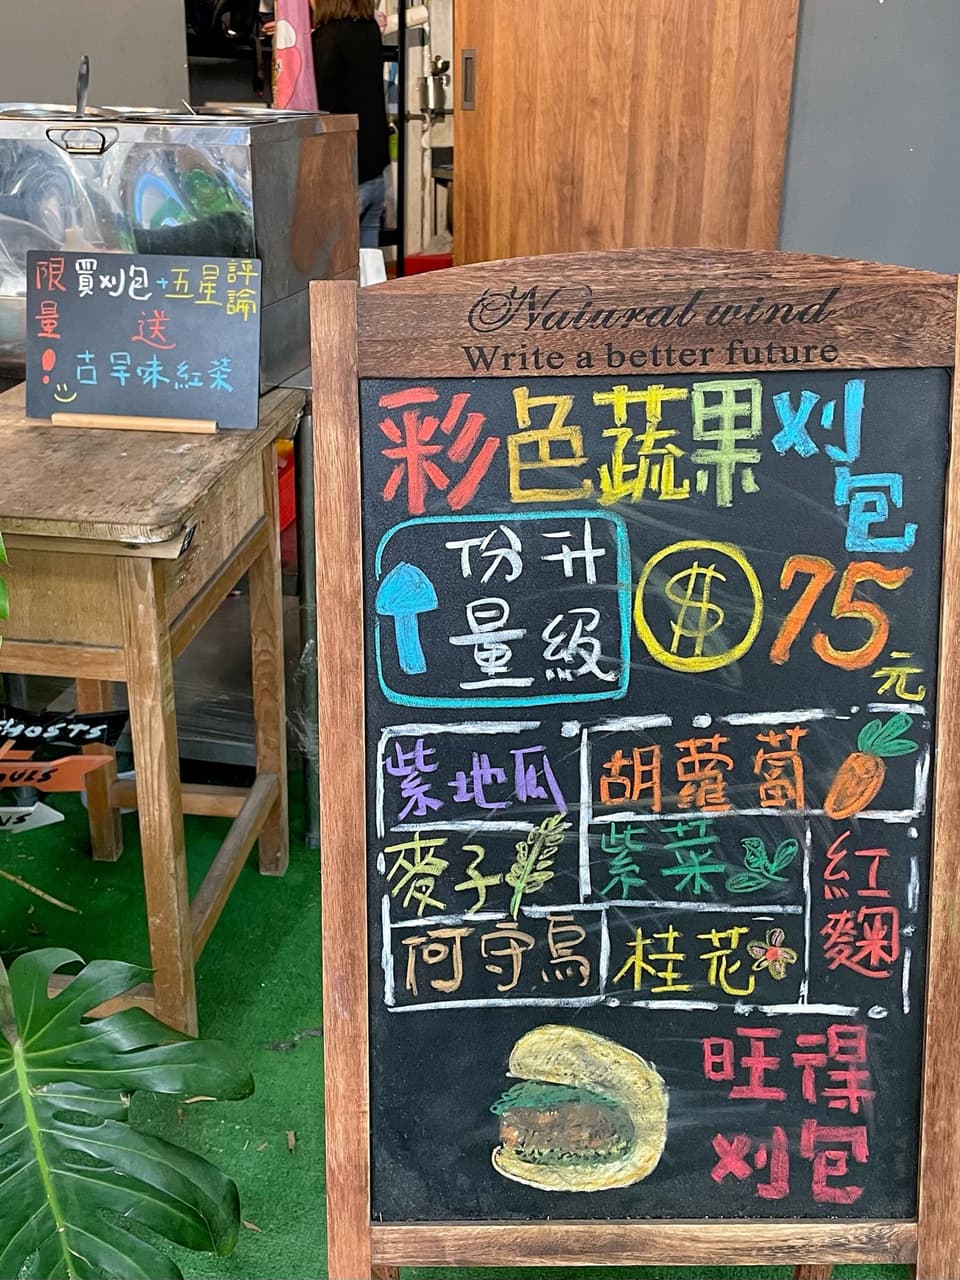 限量! 買刈包+五星評論
送
古早味紅茶
Natural wind
Write a better future
彩色蔬果刈包
份量升級
$75元
紫地瓜
胡蘿蔔
麥子
紫菜
紅麴
何守烏
桂花
旺得
刈包
GHOSTS